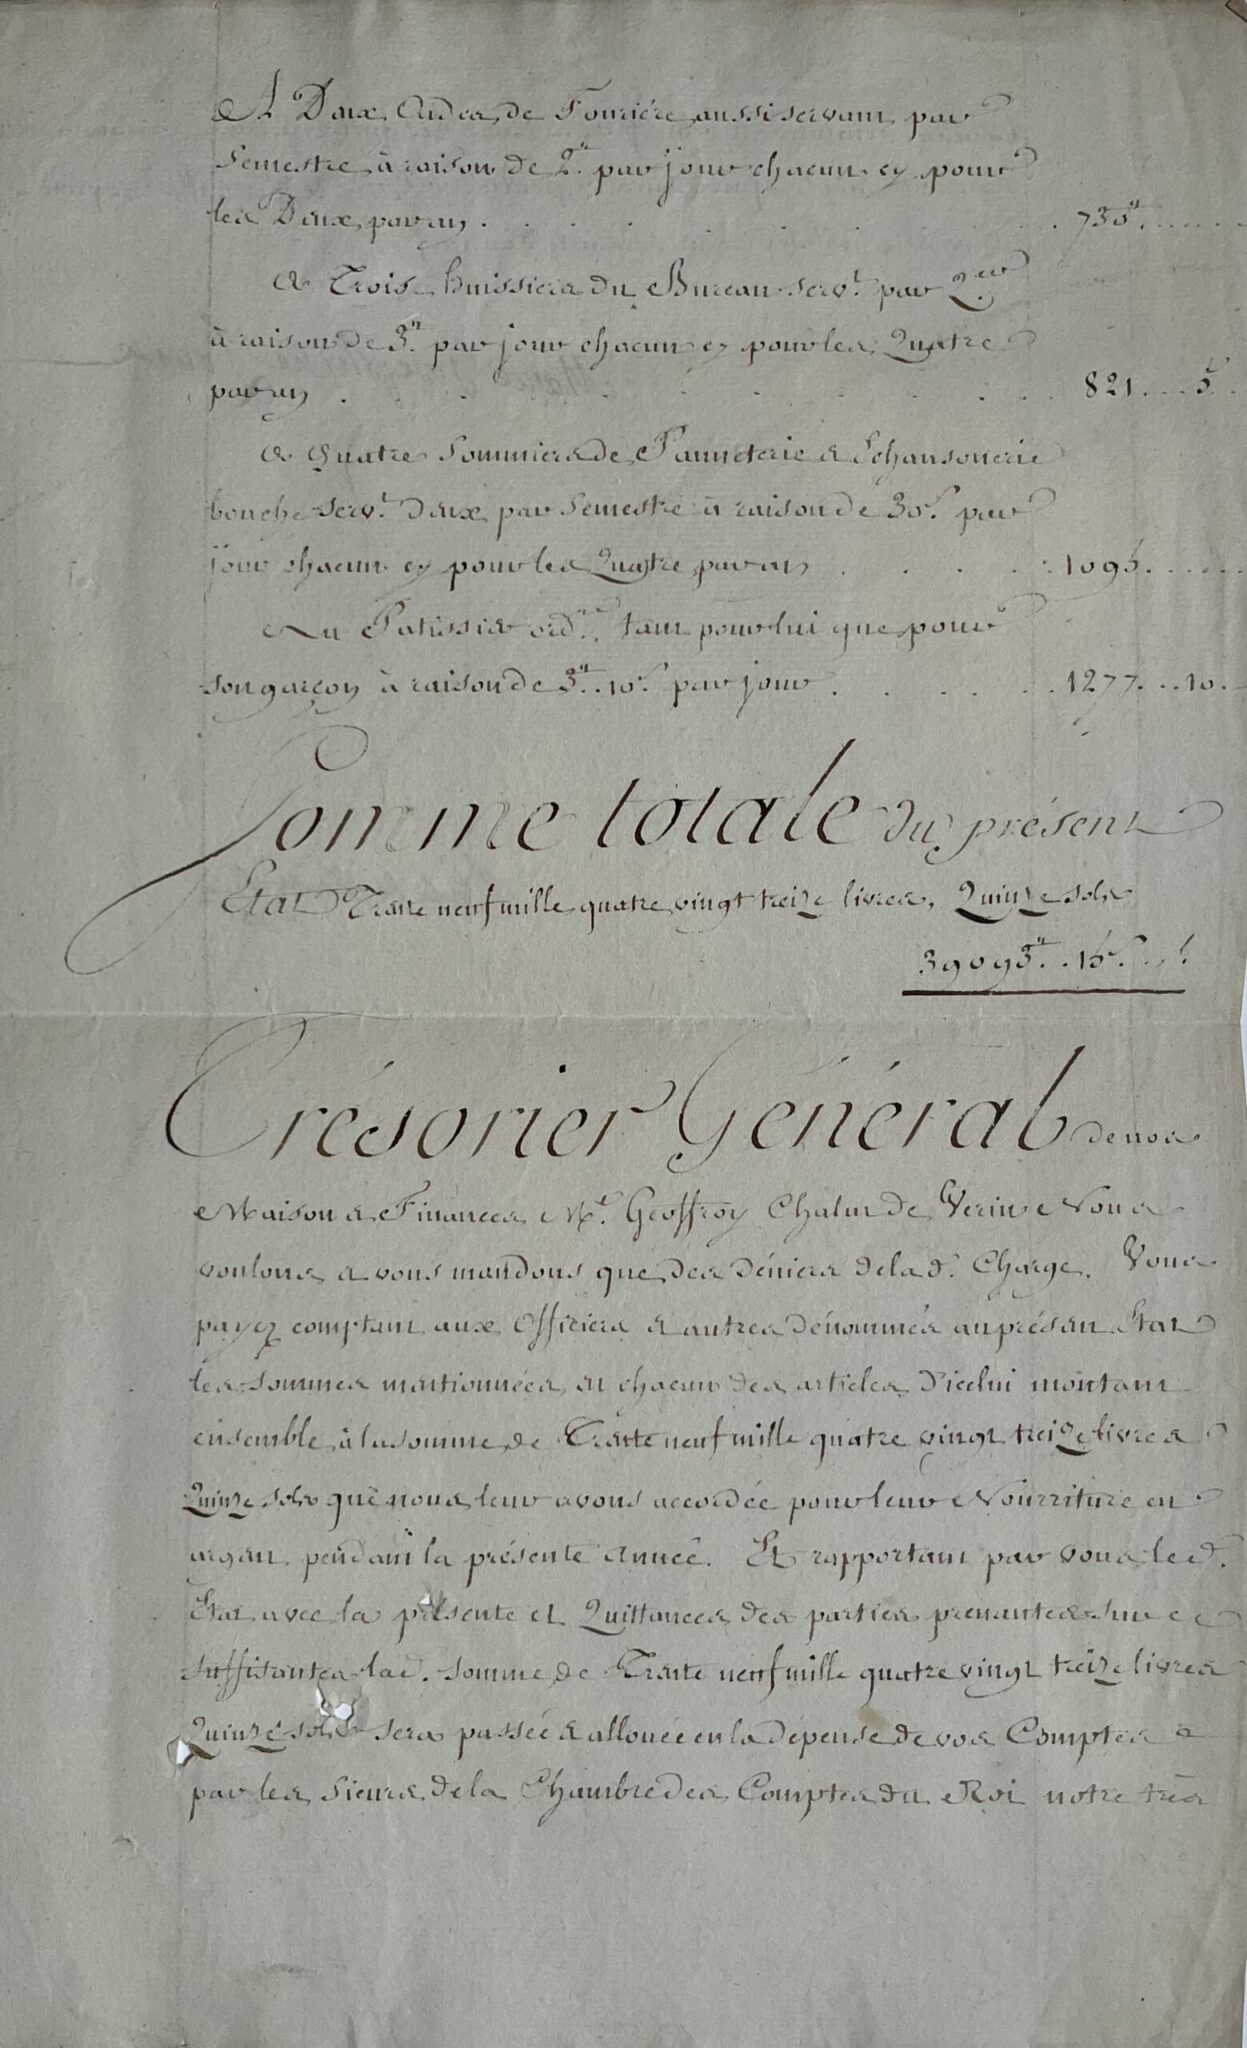 A Deux Aides de Fourriére aussi servant par
semestre à raison de 2.tt par jour chacun cy pour
les Deux par an . . . . . . . . . 730.tt . . .
A Trois huissiers du Bureau serv.t par 2.er
à raison de 3.tt par jour chacun cy pour les Quatre
par an . . . . . . . . . 821 . . . 5.s
A Quatre Sommiers de Panneterie & Echansonnerie
bouche serv.t Deux par semestre à raison de 30.s par
jour chacun cy pour les Quatre par an . . . . . 1095 . . .
Au Patissier ord.re tant pour lui que pour
son garçon à raison de 3.tt 10.s par jour . . . . . . 1277 . . . 10
Somme totale du présent
Etat Trente neuf mille quatre vingt treize livres, Quinze sols
39093.tt 15.s
Trésorier Général de nos
Maison & Finances M.e Geoffroy Chalut de Verin Nous
voulons & vous mandons que des déniers de la d. Charge, Vous
payez comptant aux Officiers & autres dénommés au présent Etat
les sommes mentionnées en chacun des articles d'icelui montant
ensemble à la somme de Trente neuf mille quatre vingt treize livres
Quinze sols que nous leur avons accordée pour leur Nourriture en
argent pendant la présente Année. Et rapportant par vous le d.
Etat avec la présente et Quittances des parties prenantes sur ce
suffisantes lad. somme de Trente neuf mille quatre vingt treize livres
Quinze sols sera passée & allouée en la dépense de vos Comptes
par les Sieurs de la Chambre des Comptes du Roi notre très